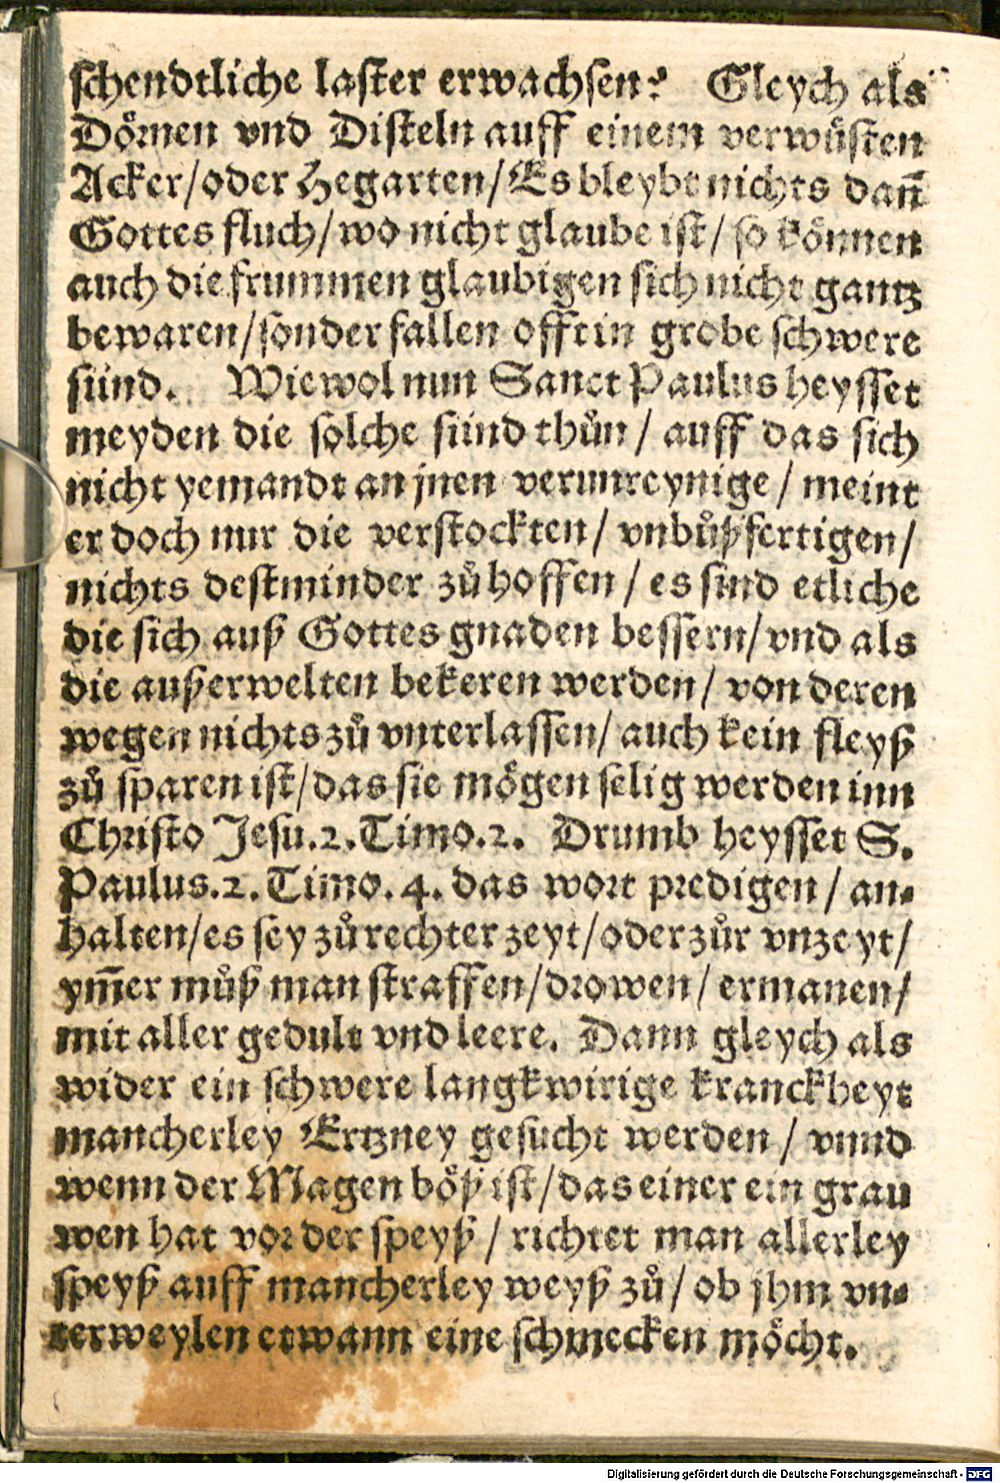 schendtliche laster erwachsen? Gleych als
Dörnen vnd Disteln auff einem verwůsten
Acker/oder Hegarten/Es bleybt nichts dañ
Gottes fluch/wo nicht glaube ist/so können
auch die frummen glaubigen sich nicht gantz
bewaren/sonder fallen offt in grobe schwere
sünd. Wiewol nun Sanct Paulus heysset
meyden die solche sünd thůn/ auff das sich
nicht yemandt an jnen verunreynige/ meint
er doch nur die verstockten/ vnbůßfertigen/
nichts destminder zů hoffen/ es sind etliche
die sich auß Gottes gnaden bessern/vnd als
die außerwelten bekeren werden/ von deren
wegen nichts zů vnterlassen/ auch kein fleyß
zů sparen ist/das sie mögen selig werden inn
Christo Jesu.2.Timo.2. Drumb heysset S.
Paulus.2.Timo.4. das wort predigen/ an-
halten/es sey zů rechter zeyt/oder zůr vnzeyt/
ym̃er můß man straffen/drowen/ ermanen/
mit aller gedult vnd leere. Dann gleych als
wider ein schwere langkwirige kranckheyt
mancherley Ertzney gesucht werden/ vnnd
wenn der Magen böß ist/das einer ein grau
wen hat vor der speyß/ richtet man allerley
speyß auff mancherley weyß zů/ ob jhm vn-
terweylen etwann eine schmecken möcht.
Digitalisierung gefördert durch die Deutsche Forschungsgemeinschaft - DFG